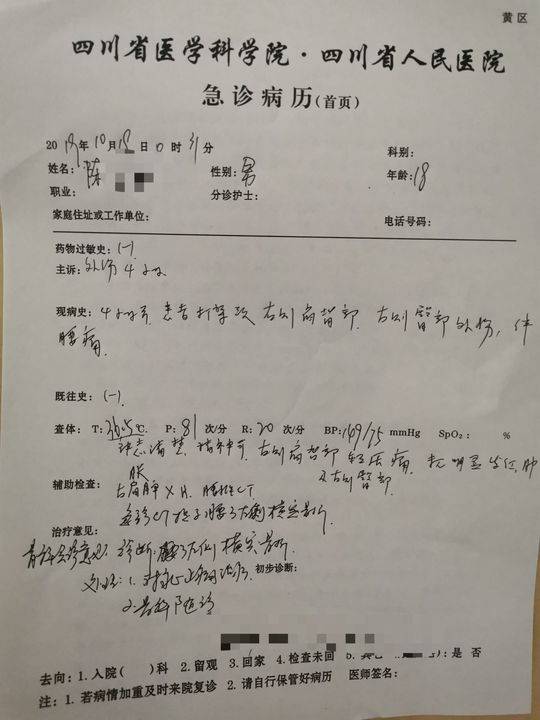 黄区
四川省医学科学院·四川省人民医院
急诊病历(首页)
2019年10月 日0时31分 科别:
姓名:陈 性别:男 年龄:18
职业: 分诊护士:
家庭住址或工作单位: 电话号码:
药物过敏史:(-)
主诉:外伤4小时
现病史:4小时前 患者打架致 右侧肩背部 右侧臀部外伤,伴
腰痛
既往史:(-).
查体: T:36.5℃. P:81次/分 R:20次/分 BP:149/75mmHg SpO₂: %
神志清楚 精神可 右侧肩背部轻压痛 无明显 肿
胀 及右侧臀部
辅助检查: 右肩胛X片 腰椎CT
急诊CT 腰 左侧横突骨折
治疗意见:
骨科会诊意见: 诊断 腰 左侧横突骨折
处理: 1. 对症止 治疗 初步诊断:
2. 骨科随诊
去向:1.入院( )科 2.留观 3.回家 4.检查未回 ):是 否
注:1.若病情加重及时来院复诊 2.请自行保管好病历 医师签名: